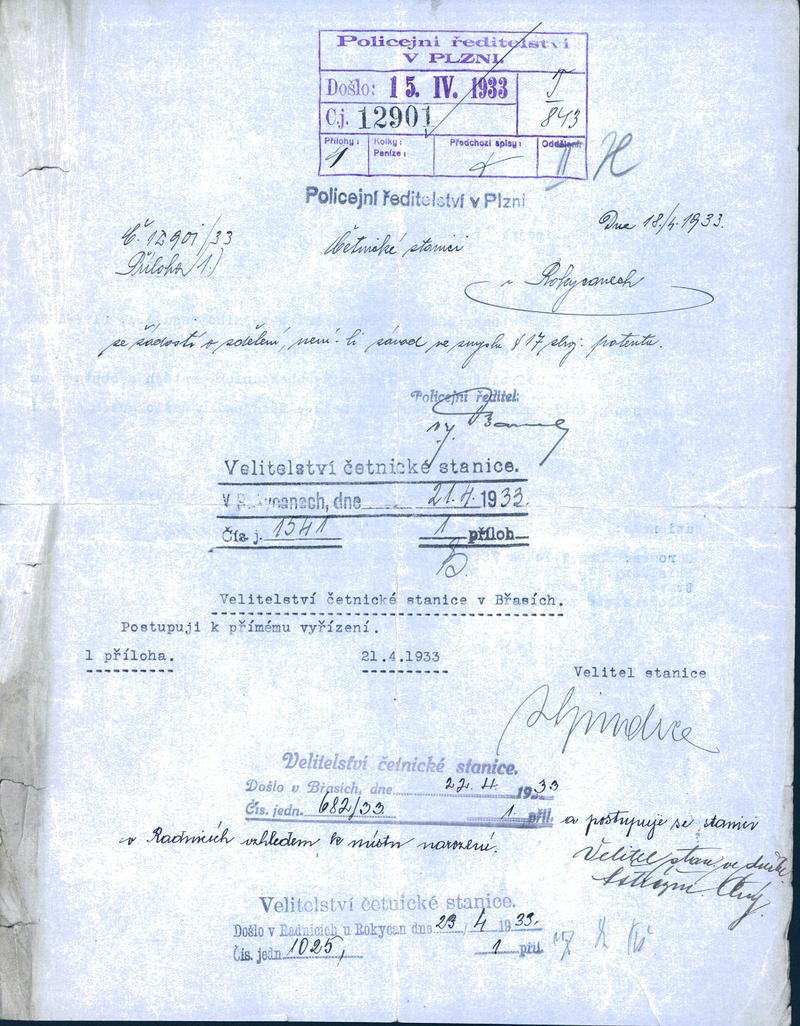 Policejní ředitelství
V PLZNI.
Došlo: 15. IV. 1933
Cj. 12901
843
Přílohy: 1 Kolky: Peníze: Předchozí spisy: Oddělení: II
Policejní ředitelství v Plzni
Č. 12901/33 Dne 18/4. 1933.
Příloha 1.) Četnické stanici
v Rokycanech
se žádostí o sdělení, není-li závad ve smyslu § 17 zbroj. patentu.
Policejní ředitel:
Velitelství četnické stanice.
V Rokycanech, dne 21.4. 1933.
Čís. j. 1541 1 příloh.
Velitelství četnické stanice v Břasích.
Postupuji k přímému vyřízení.
1 příloha. 21.4.1933
Velitel stanice
Velitelství četnické stanice.
Došlo v Břasích, dne 22. 4. 1933
Čís. jedn. 682/33. 1. příl. a postupuje se stanici
v Radnicích vzhledem k místu narození.
Velitel stan.
Velitelství četnické stanice.
Došlo v Radnicích u Rokycan dne 23/4 1933.
Čís. jedn. 1025, 1 příl.